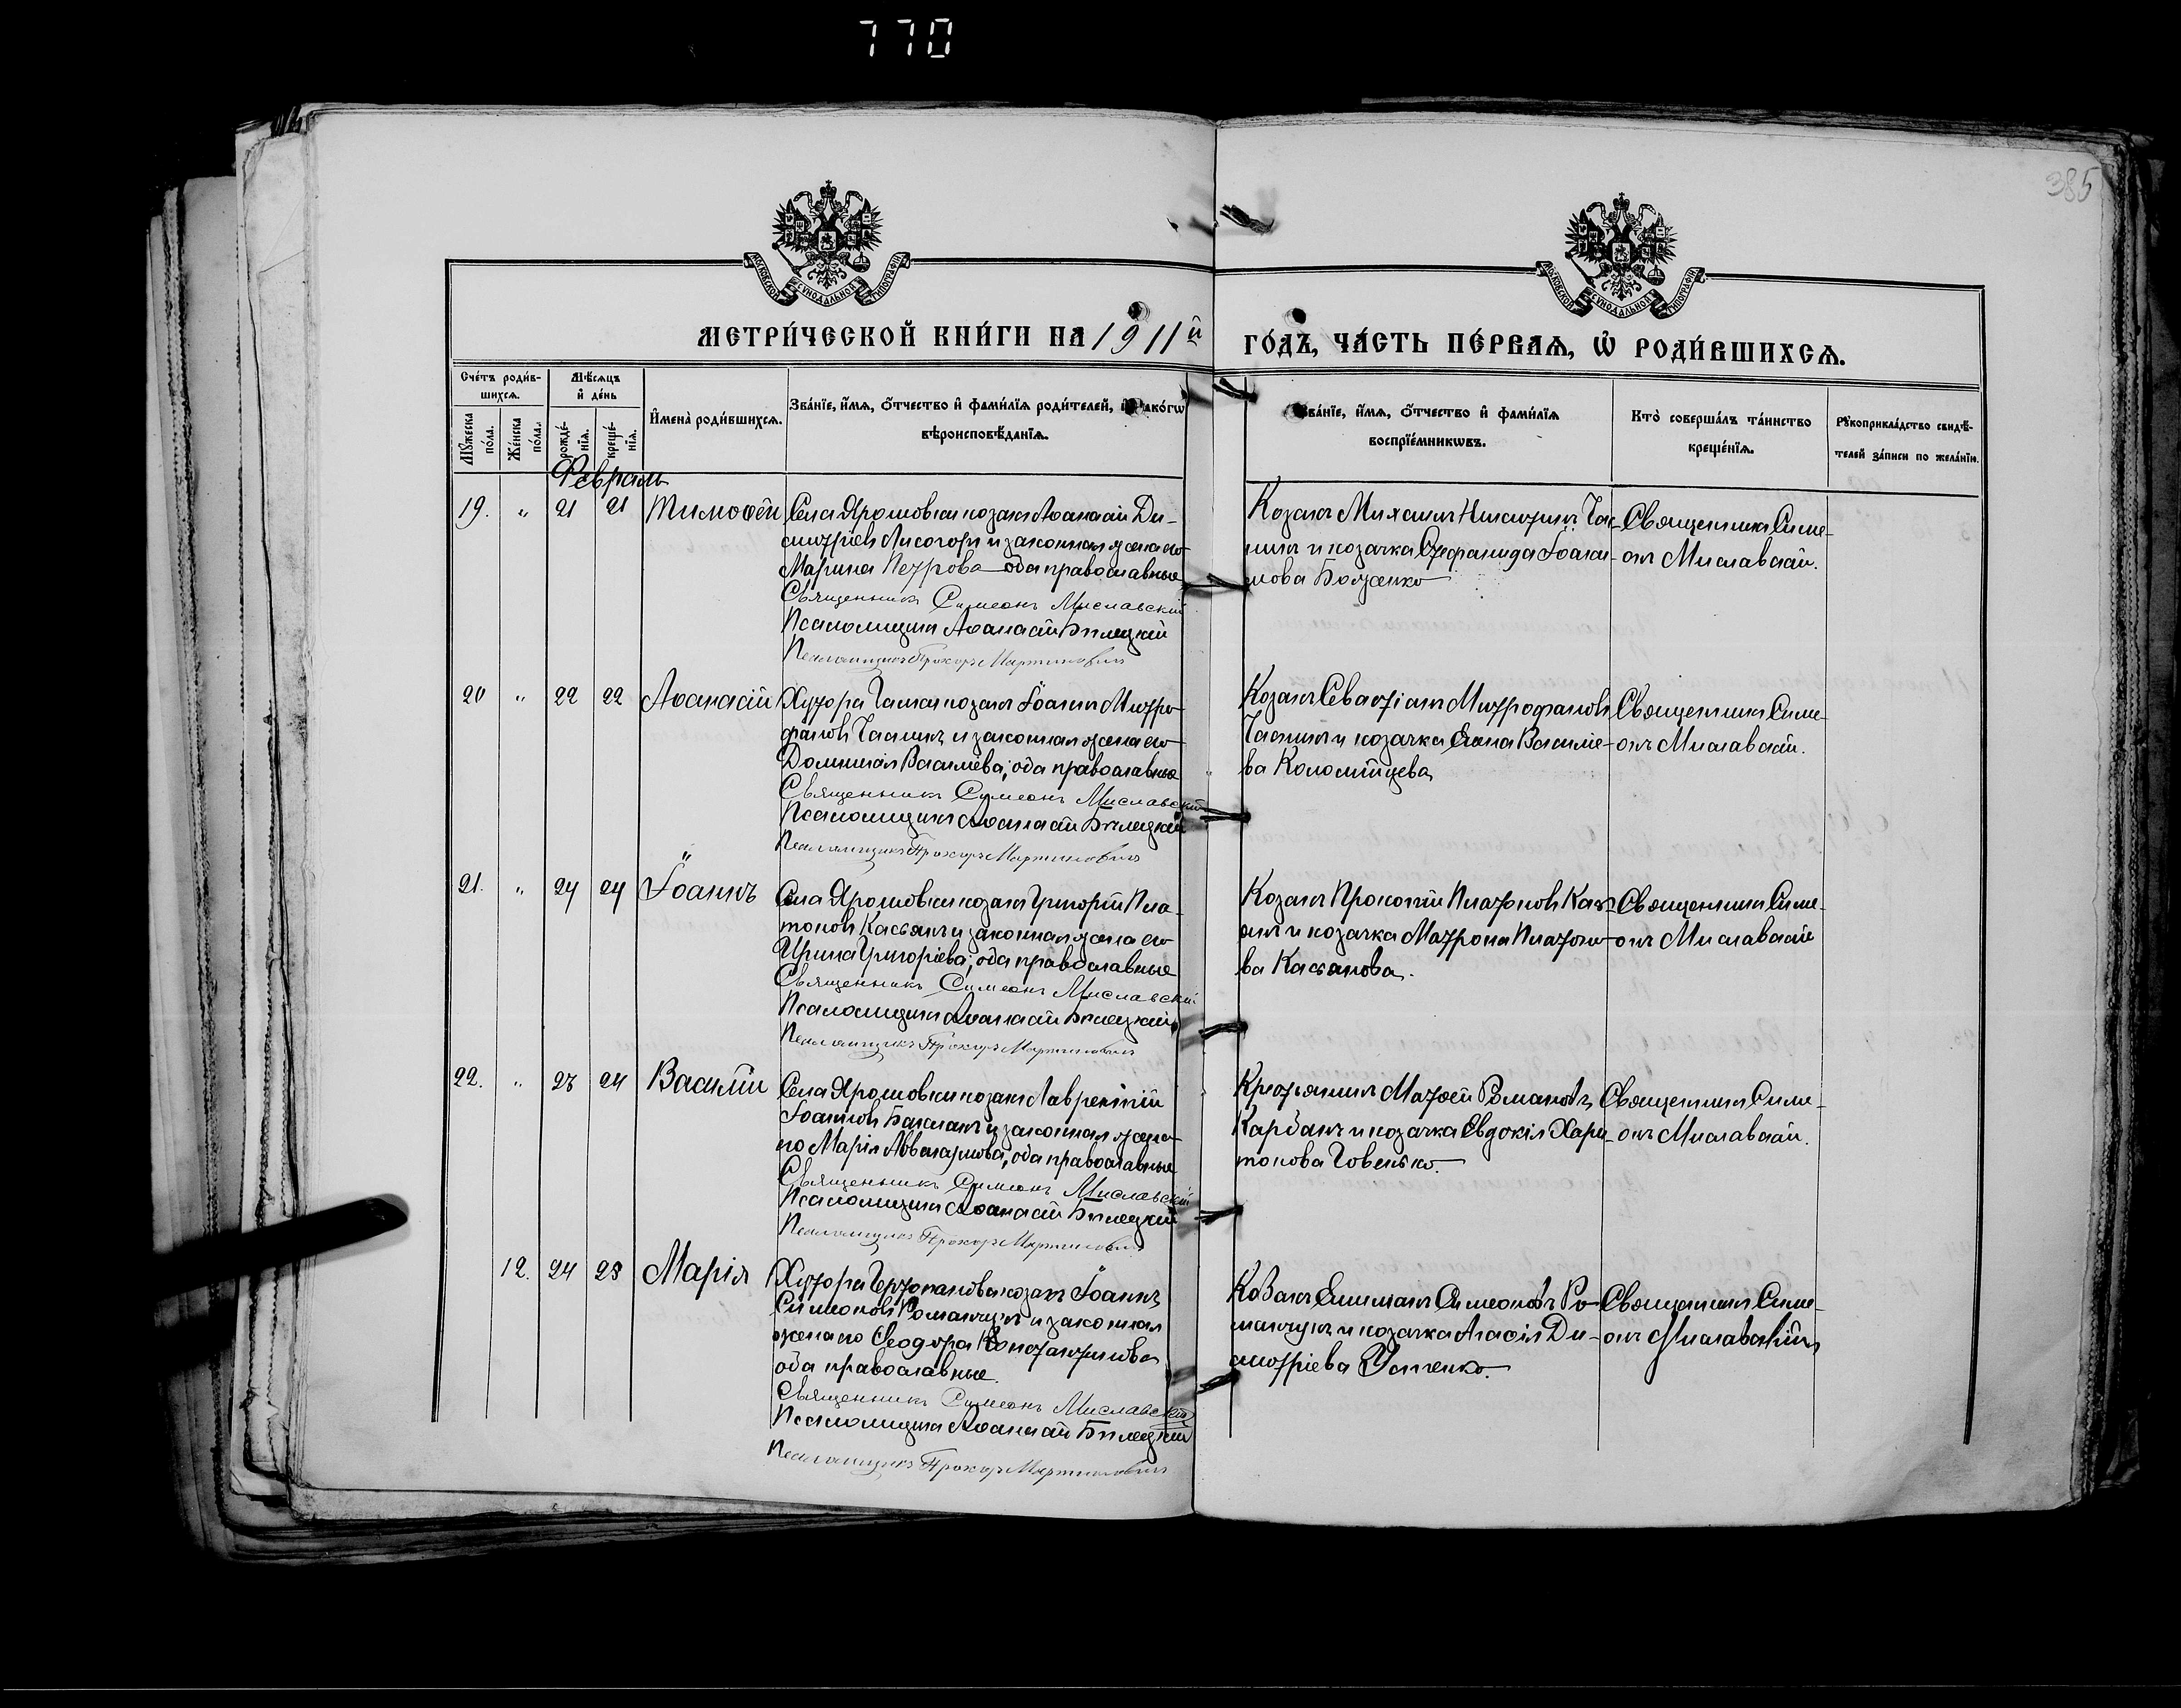 770
385
МОСКОВСКОЙ СѴНОДАЛЬНОЙ ТИПОГРАФІИ
МОСКОВСКОЙ СѴНОДАЛЬНОЙ ТИПОГРАФІИ
МЕТРИ́ЧЕСКОЙ КНИ́ГИ НА 1911й ГО́ДЪ, ЧА́СТЬ ПЕ́РВАѦ, Ѡ РОДИ́ВШИХСѦ.
Сче́тъ роди́в-
шихсѧ.
Мꙋжеска
по́ла.
Же́нска
по́ла.
Мѣ́сѧцъ
и҆ де́нь
рожде́-
нїѧ.
креще́-
нїѧ.
И҆мена̀ роди́вшихсѧ.
Зва́нїе, и҆́мѧ, ѻ҆́тчество и҆ фами́лїѧ роди́телей, и҆ како́гѡ
вѣроисповѣ́данїѧ.
Зва́нїе, и҆́мѧ, ѻ҆́тчество и҆ фами́лїѧ
воспрїе́мникѡвъ.
Кто̀ соверша́лъ та́инство
креще́нїѧ.
Рꙋкоприкла́дство свидѣ́-
телей за́писи по жела́нїю.
Февраль
19. „ 21 21 Тимоѳей
Села Ярошовки козакъ Аѳанасій Ди-
митріевъ Лисогоръ и законная жена его
Марина Петрова оба православные
Священникъ Симеонъ Миславскій
Псаломщикъ Аѳанасій Бѣлецкій
Псаломщикъ Прохоръ Мартиновичъ
Козакъ Михаилъ Никитинъ Час-
никъ и козачка Стефанида Іоаки-
мова Боженко
Священникъ Симе-
онъ Миславскій.
20 „ 22 22 Аѳанасій
Хутора Часника козакъ Іоаннъ Митро-
фановъ Часникъ и законная жена его
Домникія Васильева; оба православные
Священникъ Симеонъ Миславскій
Псаломщикъ Аѳанасій Бѣлецкій
Псаломщикъ Прохоръ Мартиновичъ
Козакъ Севастіанъ Митрофановъ
Часникъ и козачка Анна Василіе-
ва Коломійцева
Священникъ Симе-
онъ Миславскій.
21. „ 24 24 Іоаннъ
Села Ярошовки козакъ Григорій Пла-
тоновъ Касьянъ и законная жена его
Ирина Григоріева; оба православные
Священникъ Симеонъ Миславскій
Псаломщикъ Аѳанасій Бѣлецкій
Псаломщикъ Прохоръ Мартиновичъ
Козакъ Прокопій Платоновъ Кась-
янъ и козачка Матрона Платоно-
ва Касьянова.
Священникъ Симе-
онъ Миславскій
22. „ 23 24 Василій
Села Ярошовки козакъ Лаврентій
Іоанновъ Бакланъ и законная жена
его Марія Аввакумова; оба православные
Священникъ Симеонъ Миславскій
Псаломщикъ Аѳанасій Бѣлецкій
Псаломщикъ Прохоръ Мартиновичъ
Крестьянинъ Матѳей Романовъ
Карбанъ и козачка Евдокія Хари-
тонова Човенько.
Священникъ Симе-
онъ Миславскій.
12. 24 25 Марія
Хутора козакъ Іоаннъ
Симеоновъ Романчукъ и законная
жена его Ѳеодора Константинова
оба православные.
Священникъ Симеонъ Миславскій
Псаломщикъ Аѳанасій Бѣлецкій
Псаломщикъ Прохоръ Мартиновичъ
Козакъ Симеоновъ Ро-
манчукъ и козачка Агафія Ди-
митріева Устенко.
Священникъ Симе-
онъ Миславскій